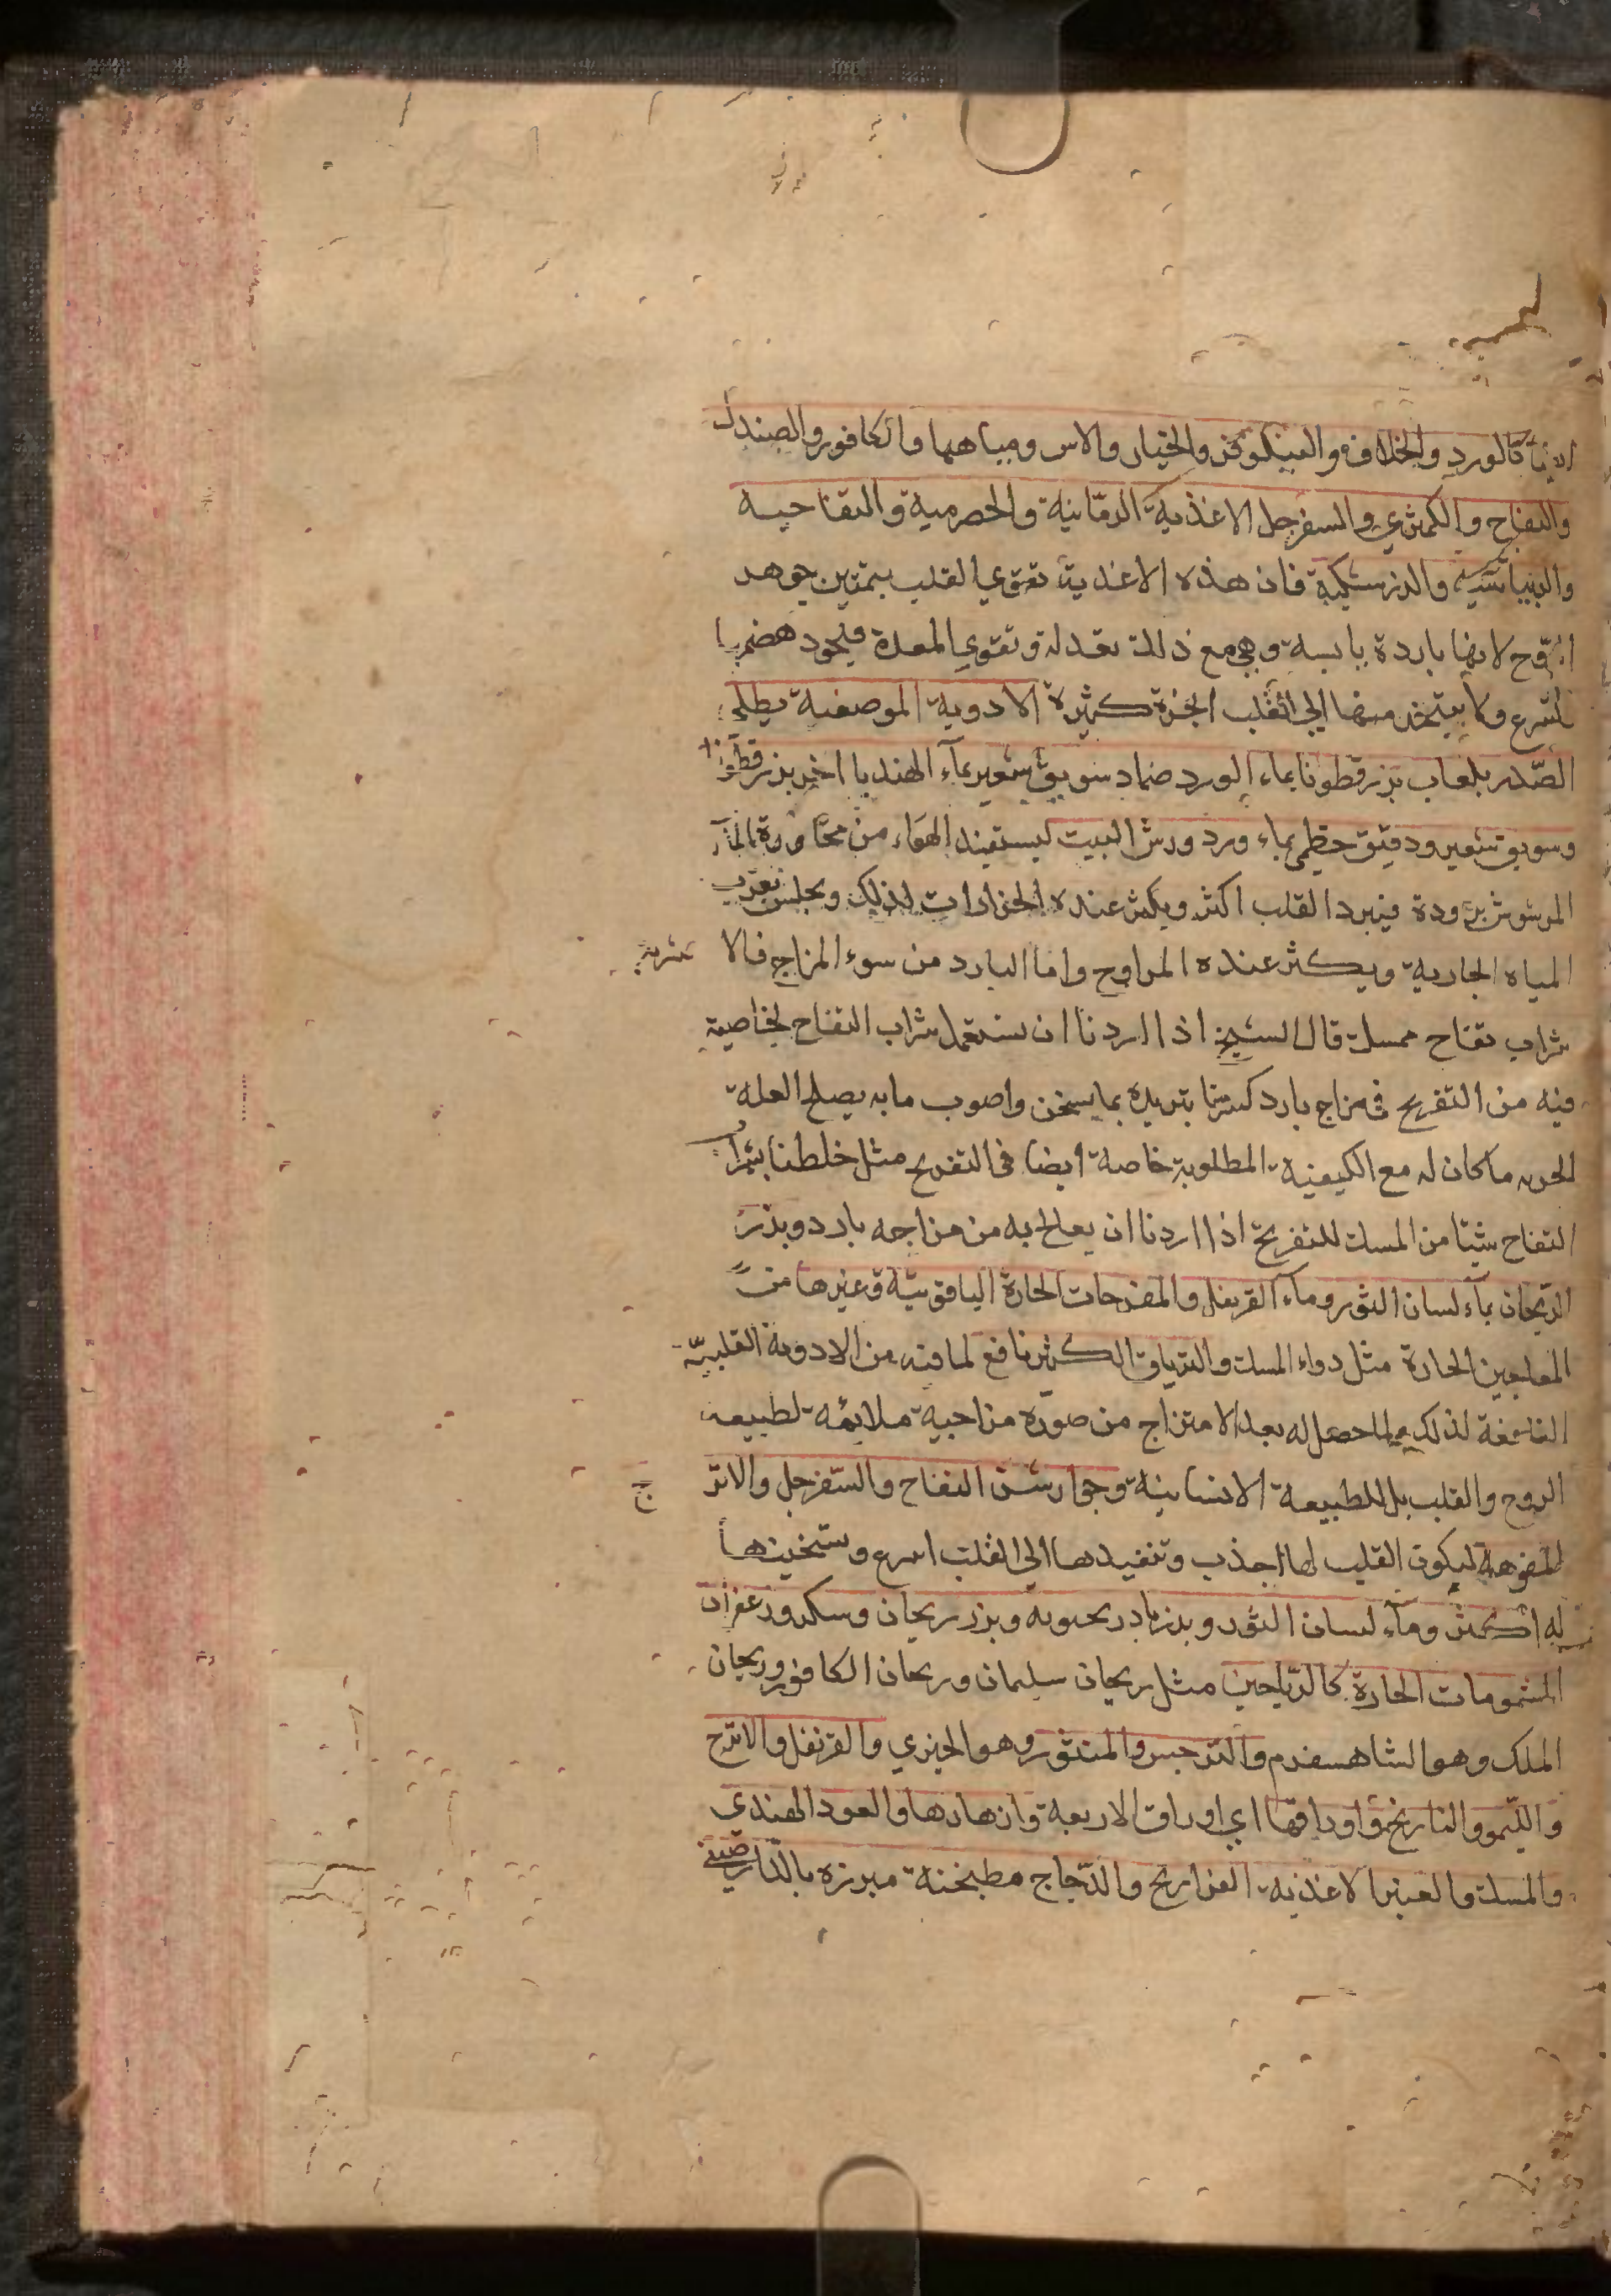 كالورد والخلاف والنيلوفر والخيار والاس ومياهها والكافور والصندل
والتفاح والكمثري والسفرجل الاغذية الرمّانية والحصرمية والتفاحيه
والزرشكية فان هذه الاغذية تقوي القلب بتمتين جوهر
الرّوح لانها باردة يابسة وهي مع ذلك تعدله وتقوي المعدة فيجود هضمها
ولا يتبخر منها الي القلب ابخرة كثيرة الادوية الموضعية يطلي
الصّدر بلعاب بزر قطونا بماء الورد ضماد سويق شعير بمآء الهندبا اخر بزر قطونا
وسويق شعير ودقيق خطمي بماء ورد ورش البيت ليستفيد الهواء من مجاورة المآء
المرشوش برودة فيبرد القلب اكثر ويكثر عنده لذلك ويجلس بقرب
المياه الجارية ويكثر عنده المراوح واما البارد من سوء المزاج فالا شربه
شراب تفاح ممسك قال الشيخ اذا اردنا ان نستعمل شراب التفاح لخاصية
فيه من التفريح في مزاج بارد كسرنا بتريده بما يسخن واصوب ما به يصلح العلة
ما كان له مع الكيفية المطلوبة خاصة ايضا في التفريح مثل خلطنا بشراب
التفاح شيئا من المسك للتفريح اذا اردنا ان يعالج به من مزاجه بارد وبزر
الرّيحان بمآء لسان الثور ومآء القرنفل والمفرحات الحارة الياقوتية وغيرها من
المعاجين الحارة مثل دواء المسك والترياق الكبير نافع لما فيه من الادوية القلبيّة
النافعة لذلك ولما حصل له بعد الامتزاج من صورة مزاجية ملايمة لطبيعه
الروح والقلب بل للطبيعة الانسانية وجوارشن التفاح والسّفرجل والاتر ج
المفوهة ليكون القلب لها اجذب وتنفيدها الي القلب اسرع وتسخينها
له اكثر ومآء لسان الثور وبزر بادرنجبويه وبزر ريحان وسكر وزعفران
المشمومات الحارة كالرّياحين مثل ريحان سليمان وريحان الكافور وريحان
الملك وهو الشاهسفرم والنرجس والمنثور وهو الخيري والقرنفل والاترج
والليّمو والنارنج واوراقها اي اوراق الاربعة وازهارها والعود الهندي
والمسك والعنبر الاغذيه الفراريج والدّجاج مطبخنة مبرزه بالدّارصيني